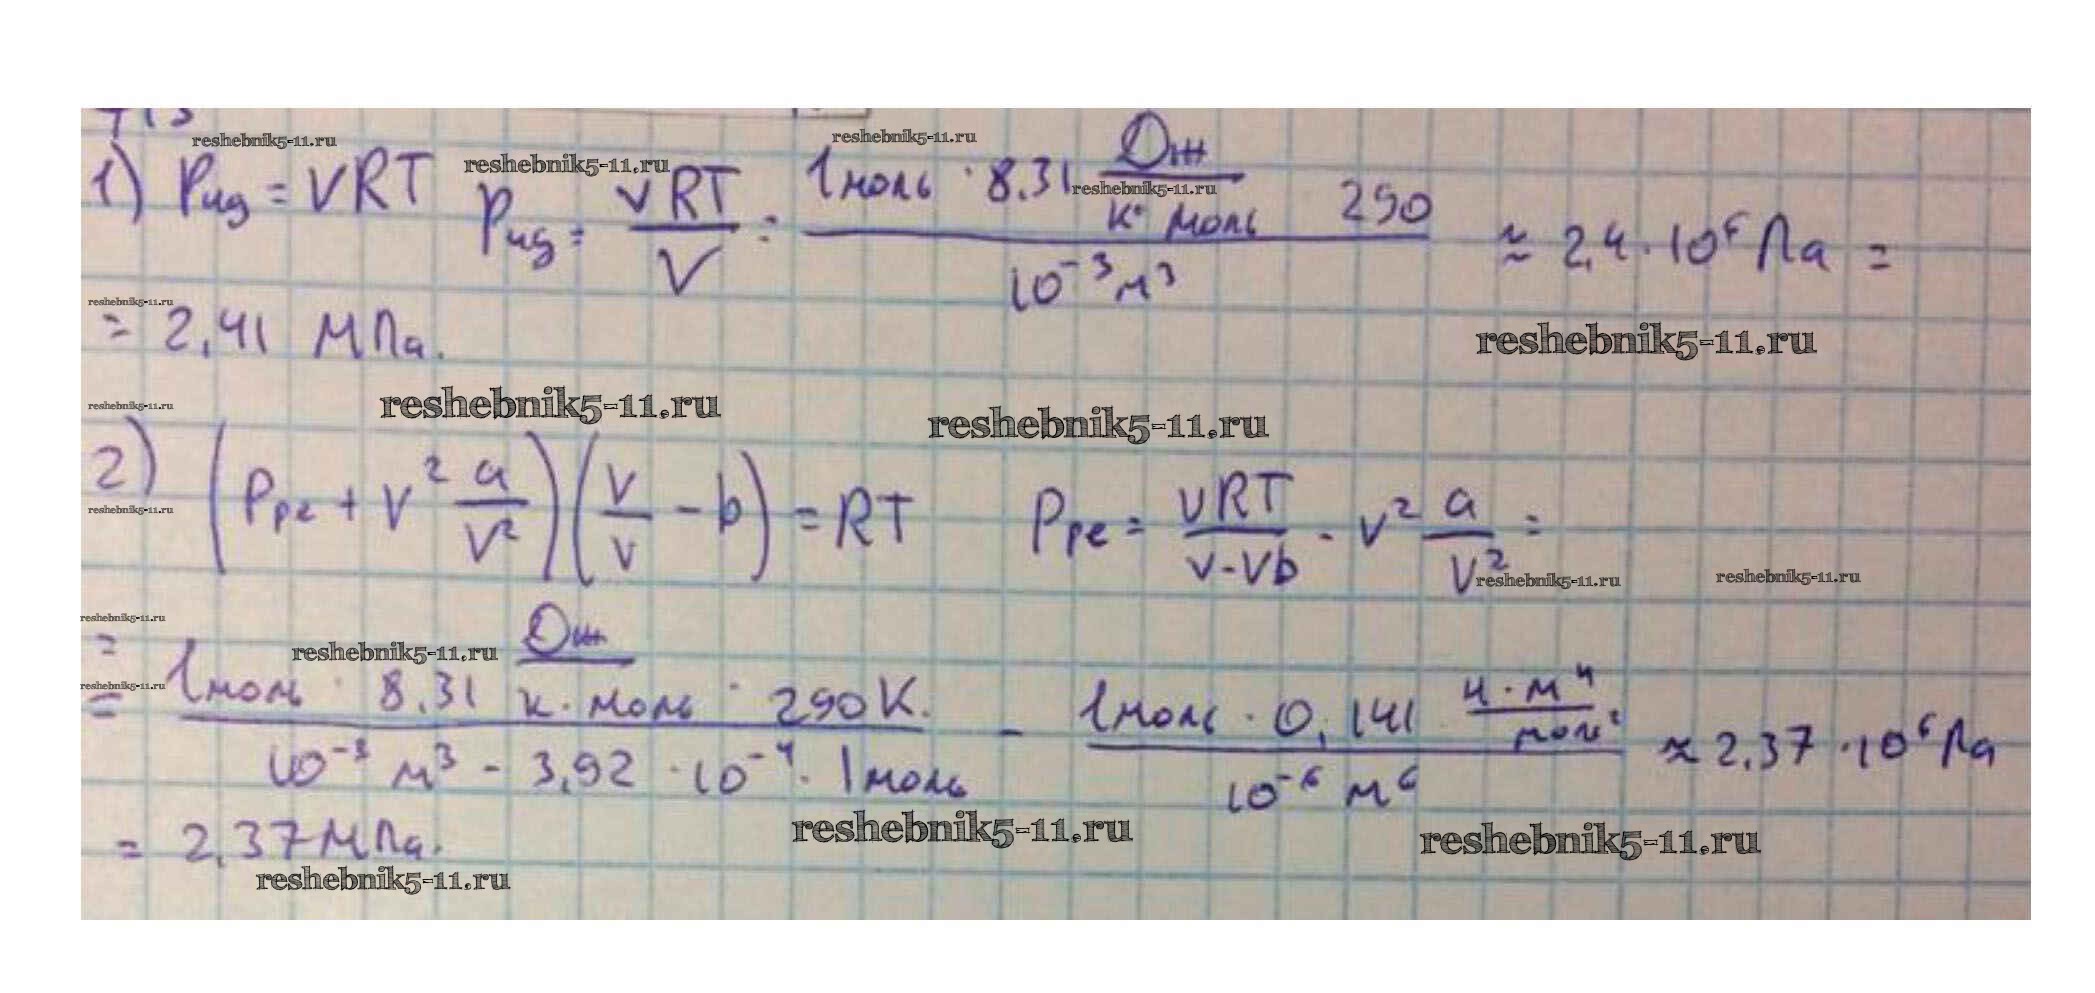 reshebnik5-11.ru reshebnik5-11.ru reshebnik5-11.ru
1) Pид = νRT Pид = νRT / V = 1моль · 8.31 Дж / К·моль 290 / 10⁻³м³ ≈ 2,4·10⁶ Па =
reshebnik5-11.ru
= 2,41 МПа. reshebnik5-11.ru
reshebnik5-11.ru reshebnik5-11.ru reshebnik5-11.ru
2) (Pре + ν² a / V²)(V / ν - b) = RT Pре = νRT / V-νb - ν² a / V² =
reshebnik5-11.ru reshebnik5-11.ru reshebnik5-11.ru
reshebnik5-11.ru reshebnik5-11.ru
= 1моль · 8,31 Дж / К·моль · 290К. / 10⁻³ м³ - 3,92 · 10⁻⁴ · 1моль - 1моль · 0,141 Н·м⁴ / моль² / 10⁻⁶ м⁶ ≈ 2,37 · 10⁶ Па
reshebnik5-11.ru
= 2,37МПа. reshebnik5-11.ru reshebnik5-11.ru
reshebnik5-11.ru